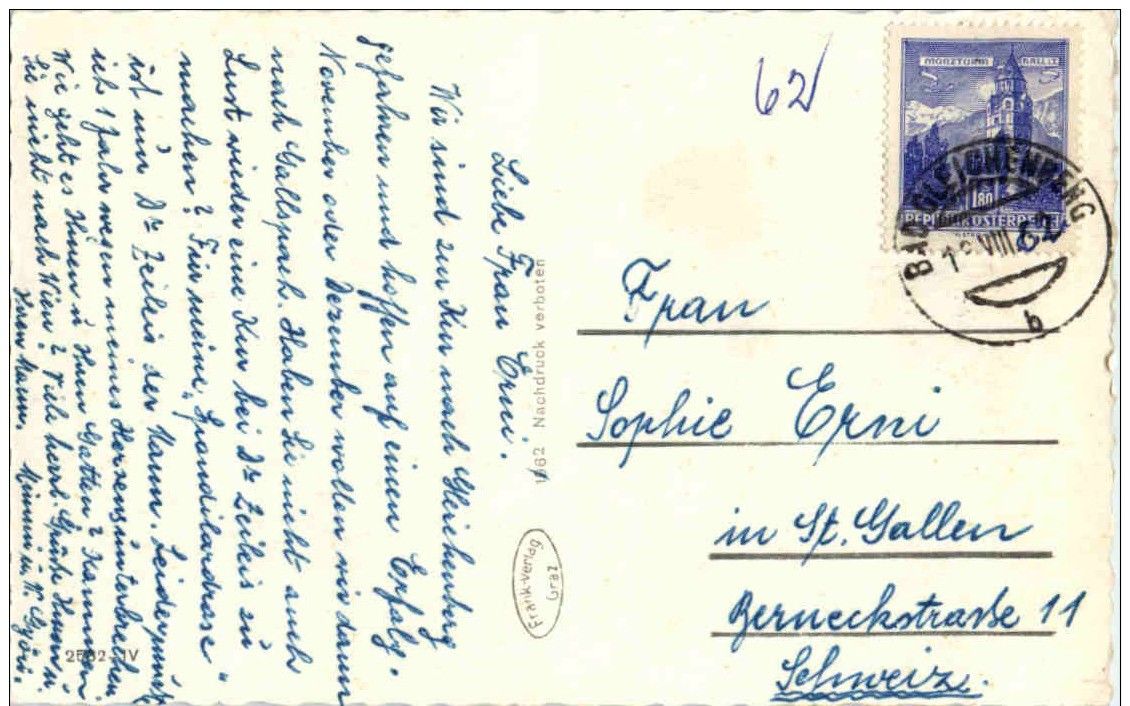 Liebe Frau Erni.
Wir sind zur Kur nach Gleichenberg
gefahren und hoffen auf einen Erfolg.
November oder Dezember wollen wir dann
nach Gallspach. Haben Sie nicht auch
Lust wieder eine Kur bei Dr Zeileis zu
machen? Für meine
ist nur Dr Zeileis der Mann. Leider musste
ich 1 Jahr wegen meines Herzens unterbrechen
Wie geht es Ihnen u Ihren Gatten? Kommen
Sie nicht nach Wien? Viele herzl. Grüße Ihnen u.
Ihren Mann Minni u.
1962 Nachdruck verboten
Frank-Verlag
Graz
2562-IV
62
MÜNZTURM HALL I.T.
1.80
REPUBLIK ÖSTERREICH
BAD GLEICHENBERG
VIII 62
b
Frau
Sophie Erni
in St. Gallen
Berneckstraße 11
Schweiz.